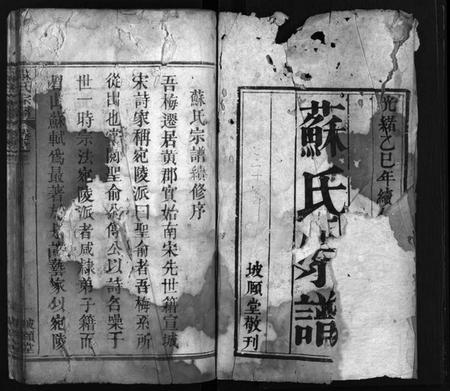 光緒乙巳年續
蘇氏宗譜
坡頤堂敬刊
蘇氏宗譜續修序
吾梅遷居黄郡實始南宋先世籍宣城
宋詩家稱宛陵派曰聖俞者吾梅系所
從出也當聖俞公以詩名噪于
世一時宗法宛陵派者咸隸弟子籍而
眉山蘇軾爲最著家以宛陵
坡頤堂